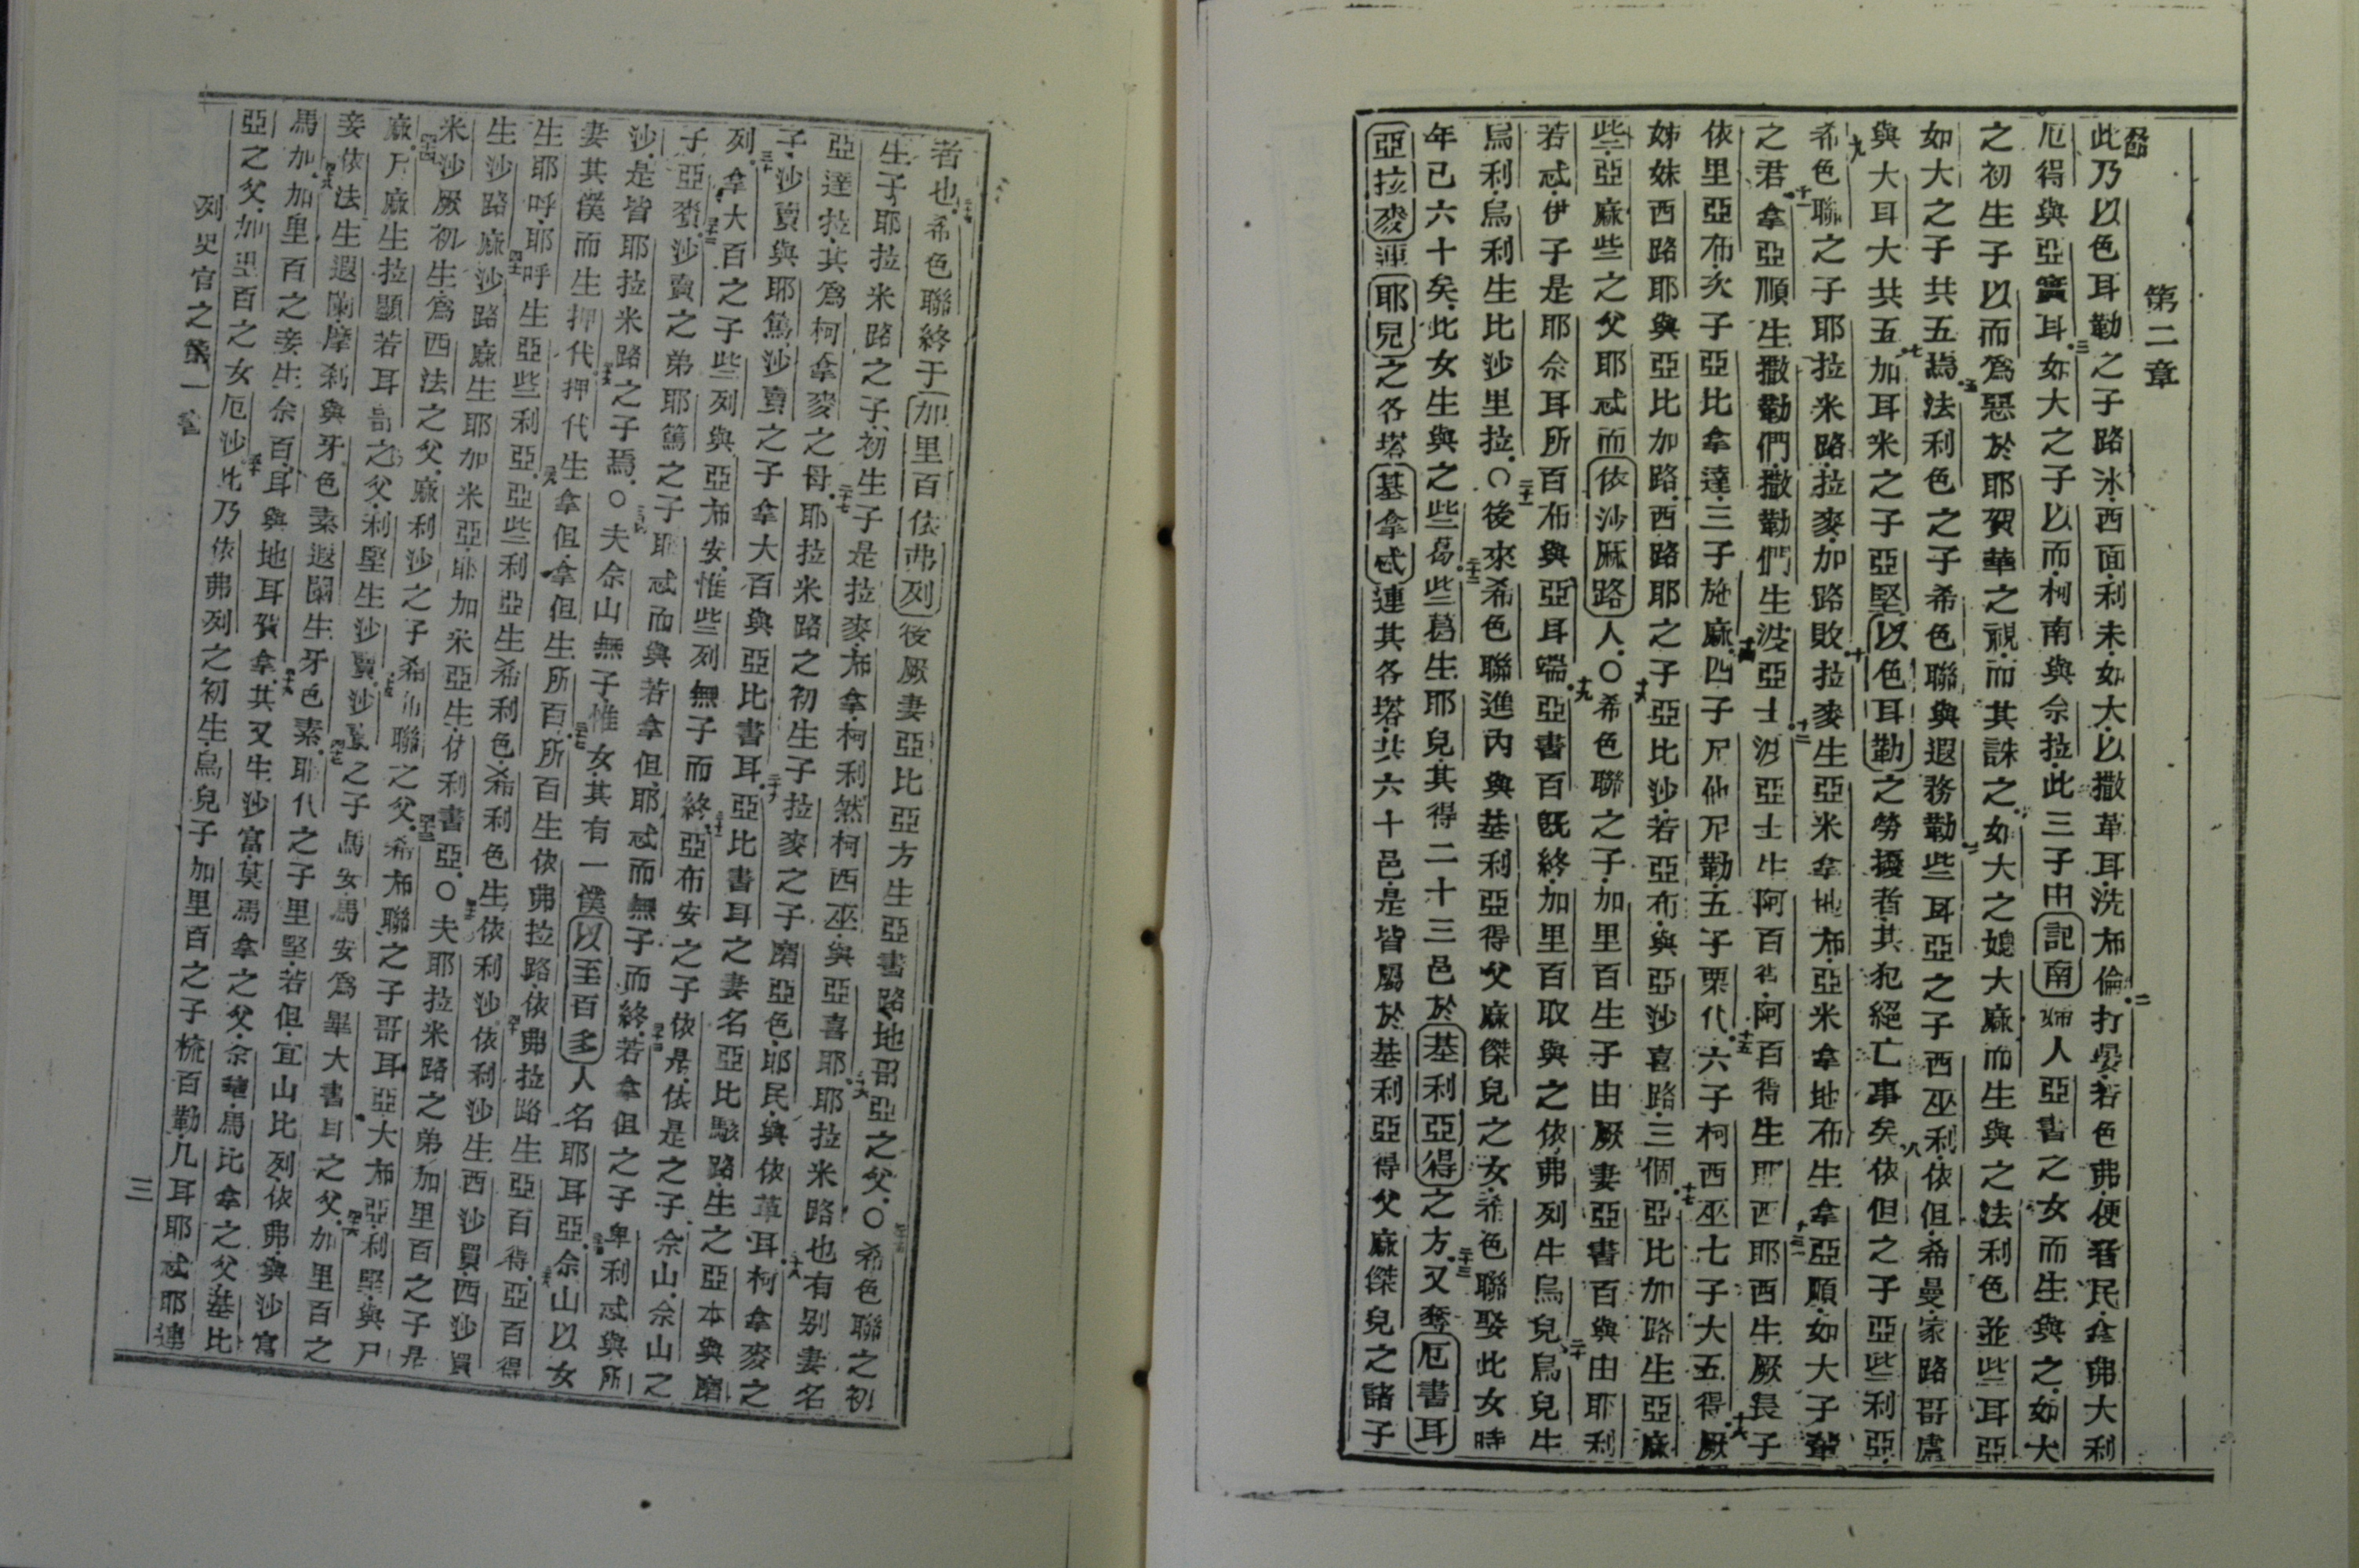 第二章
此乃以色耳勒之子路氷.西面.利未.如大.以撒革耳.洗布倫.二打晏.若色弗.便者民.拿弗大利
厄得與亞實耳.三如大之子以而.柯南與佘拉.此三子由記南婦人亞書之女而生與之.如大
之初生子以而爲惡於耶賀華之視.而其誅之.如大之媳大麻而生與之法利色並些耳亞
如大之子共五焉.五法利色之子希色聯與遐務勒些耳亞之子西巫利.依但.希曼.家路哥盧
與大耳大共五.七加耳米之子亞堅以色耳勒之勞擾者.其犯絕亡事矣.八依但之子亞些利亞.
九希色聯之子耶拉米路.拉麥.加路敗.十拉麥生亞米拿地布.亞米拿地布生拿亞順.如大子輩
之君.十一拿亞順生撒勒們.撒勒們生波亞士.十二波亞士生阿百得.阿百得生耶西.十三耶西生厥長子
依里亞布.次子亞比拿達.三子施麻.十四四子尼他尼勒.五子栗代.十五六子柯西巫.七子大五得.十六厥
姊妹西路耶與亞比加路.西路耶之子亞比沙.若亞布.與亞沙喜路.三個.十七亞比加路生亞麻
些.亞麻些之父耶忒而依沙厤路人.〇十八希色聯之子.加里百生子由厥妻亞書百與由耶利
若忒.伊子是耶佘耳所百布與亞耳端.十九亞書百旣終.加里百取與之依弗列生烏兒.二十烏兒生
烏利.烏利生比沙里拉.〇二十一後來希色聯進內與基利亞得父麻傑兒之女.希色聯娶此女時
年已六十矣.此女生與之些葛.二十二些葛生耶兒.其得二十三邑於基利亞得之方.二十三又奪厄書耳
亞拉麥連耶兒之各塔基拿忒連其各塔.共六十邑.是皆屬於基利亞得父麻傑兒之諸子
者也.二十四希色聯終于加里百依弗列後厥妻亞比亞方生亞書路地哥亞之父.〇二十五希色聯之初
生子耶拉米路之子.初生子是拉麥.布拿.柯利然柯西巫.與亞喜耶.二十六耶拉米路也有别妻名
亞達拉.其爲柯拿麥之母.二十七耶拉米路之初生子拉麥之子磨亞色.耶民.與依革耳.二十八柯拿麥之
子.沙賣與耶篤.沙賣之子拿大百與亞比書耳.二十九亞比書耳之妻名亞比駭路.生之亞本與磨
列.三十拿大百之子些列與亞布安.惟些列無子而終.三十一亞布安之子依是.依是之子佘山.佘山之
子亞賚.三十二沙賣之弟耶篤之子耶忒而與若拿但.耶忒而無子而終.三十三若拿但之子卑利忒與所
沙.是皆耶拉米路之子焉.〇三十四夫佘山無子惟女.其有一僕以至百多人名耶耳亞.三十五佘山以女
妻其僕而生押代.三十六押代生拿但.拿但生所百.三十七所百生依弗拉路.依弗拉路生亞百得.三十八亞百得
生耶呼.耶呼生亞些利亞.三十九亞些利亞生希利色.希利色生依利沙.四十依利沙生西沙買.西沙買
生沙路麻.四十一沙路麻生耶加米亞.耶加米亞生.依利書亞.〇四十二夫耶拉米路之弟加里百之子是
米沙厥初生.爲西法之父.麻利沙之子希布聯之父.四十三希布聯之子哥耳亞大布亞.利堅.與尸
麻.四十四尸麻.生拉顯若耳哥之父.利堅生沙賣.四十五沙賣之子馬安.馬安爲畢大書耳之父.四十六加里百之
妾依法生遐蘭.摩刹與牙色素遐蘭生牙色素.四十七耶代之子里堅.若但.宜山比列.依弗.與沙富
馬加.四十八加里百之妾.生佘百.耳與地耳賀拿.四十九其又生沙富.莫馬拿之父.佘華.馬比拿之父.基比
亞之父.加里百之女厄沙.五十此乃依弗列之初生.烏兒子加里百之子.梳百勒.几耳耶忒耶連
列史官之第一書
三